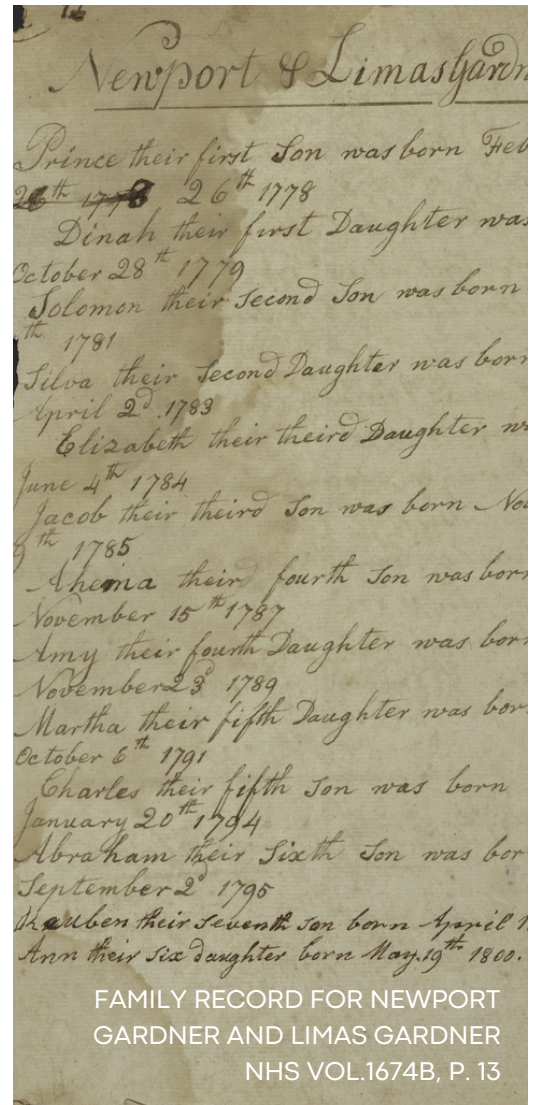 Newport & Limas Gardn
Prince their first Son was born Feb
26th 1778 26th 1778
Dinah their first Daughter was
October 28th 1779
Solomon their Second Son was born
th 1781
Silva their Second Daughter was born
April 2d 1783
Elizabeth their theird Daughter w
June 4th 1784
Jacob their theird Son was born No
9th 1785
Ahema their fourth Son was born
November 15th 1787
Amy their fourth Daughter was born
November 23d 1789
Martha their fifth Daughter was bor
October 6th 1791
Charles their fifth Son was born
January 20th 1794
Abraham their Sixth Son was bor
September 2d 1795
Reuben their Seventh Son born April 1
Ann their Six daughter born May. 19th 1800.
FAMILY RECORD FOR NEWPORT
GARDNER AND LIMAS GARDNER
NHS VOL.1674B, P. 13